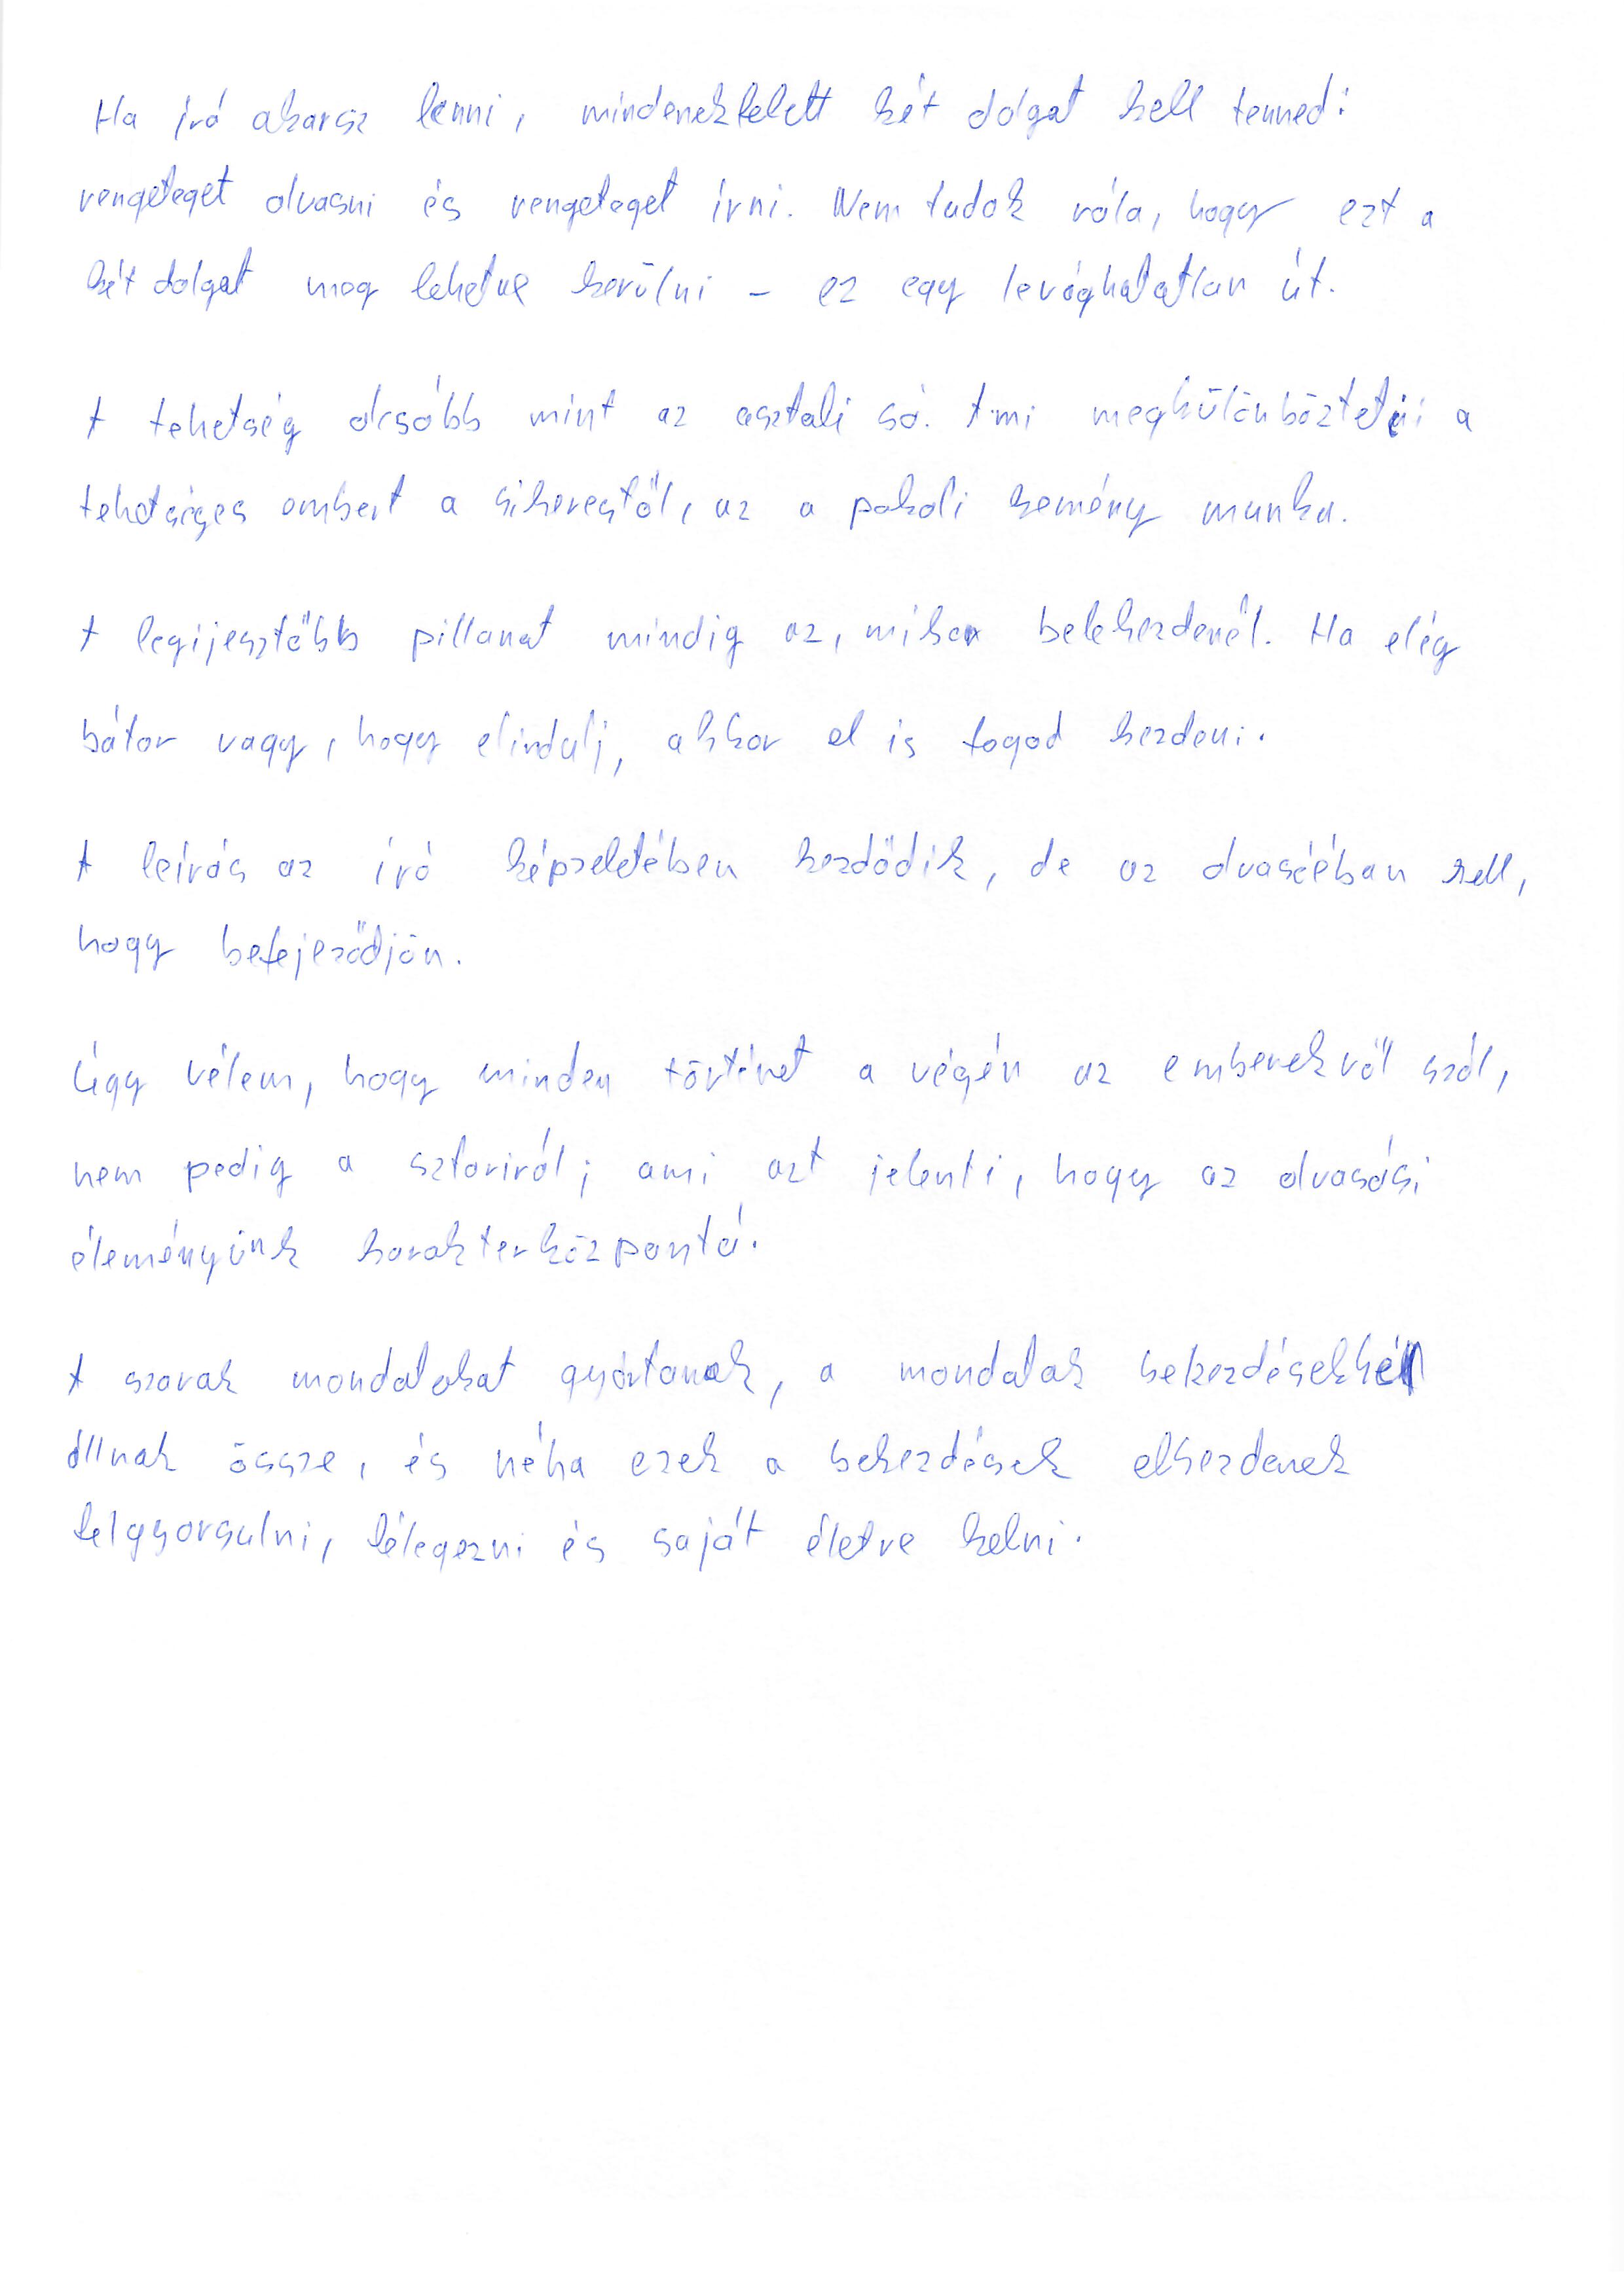 Ha író akarsz lenni, mindenekfelett két dolgot kell tenned:
rengeteget olvasni és rengeteget írni. Nem tudok róla, hogy ezt a
két dolgot meg lehetne kerülni – ez egy levághatatlan út.
A tehetség olcsóbb mint az asztali só. Ami megkülönbözteti a
tehetséges embert a sikerestől, az a pokoli kemény munka.
A legijesztőbb pillanat mindig az, mikor belekezdenél. Ha elég
bátor vagy, hogy elindulj, akkor el is fogod kezdeni.
A leírás az író képzeletében kezdődik, de az olvasóéban kell,
hogy befejeződjön.
Úgy vélem, hogy minden történet a végén az emberekről szól,
nem pedig a sztoriról; ami azt jelenti, hogy az olvasási
éleményünk karakterközpontú.
A szavak mondatokat gyártanak, a mondatok bekezdésekké
állnak össze, és néha ezek a bekezdések elkezdenek
felgyorsulni, lélegezni és saját életre kelni.